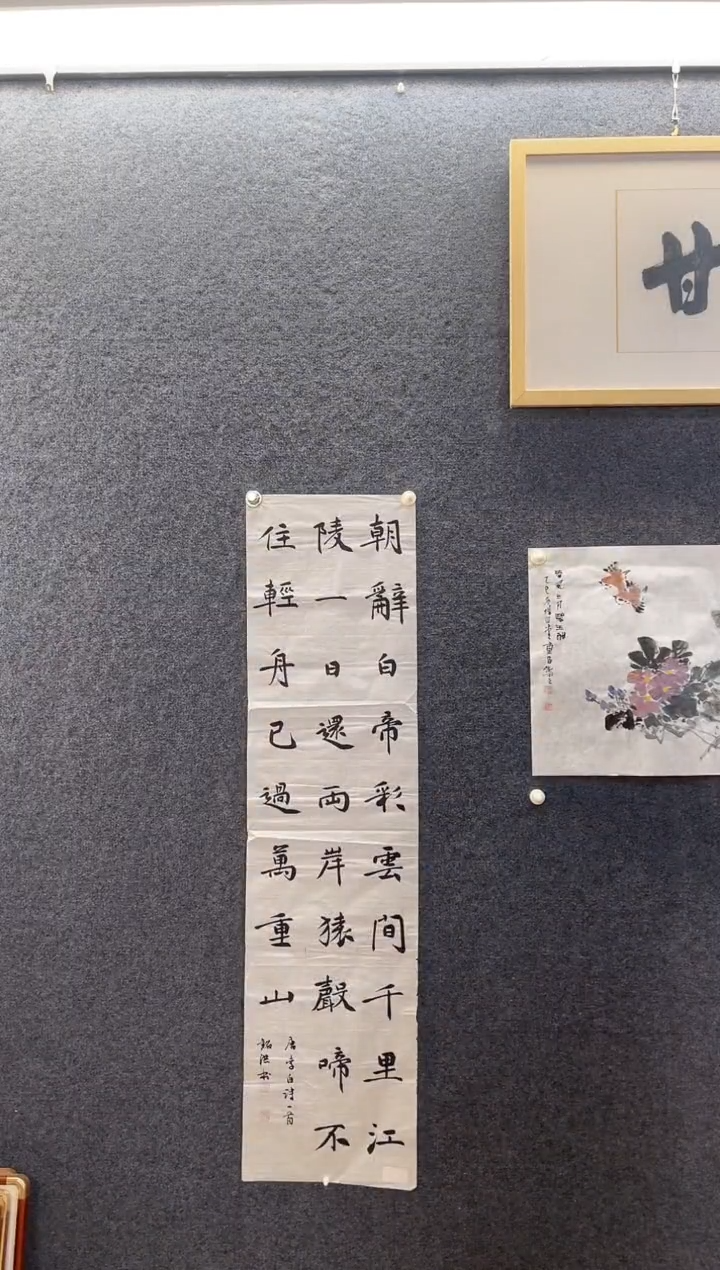 甘
朝辭白帝彩雲間千里江
陵一日還兩岸猿聲啼不
住輕舟已過萬重山
唐李白诗一首